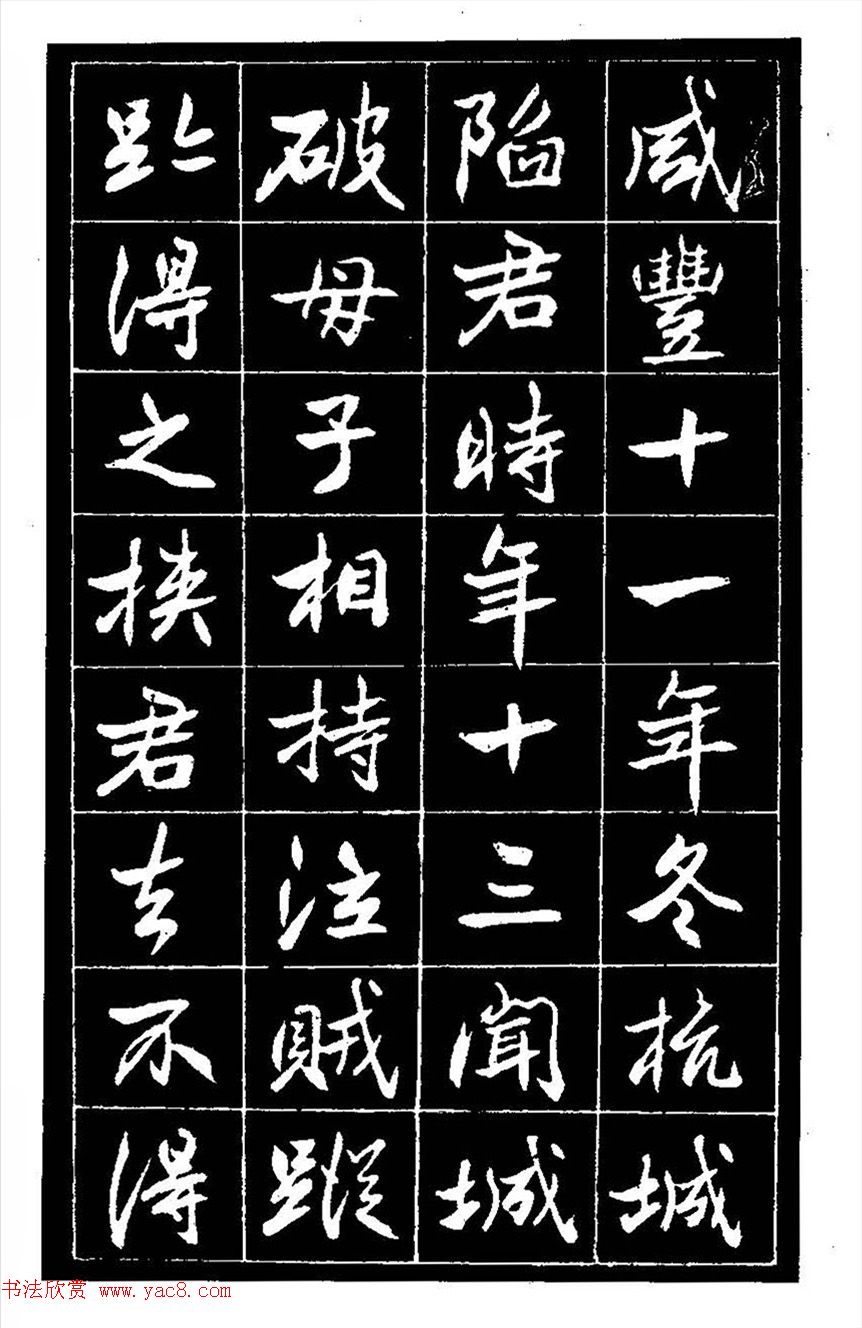 咸豐十一年冬杭城
陷君時年十三聞城
破母子相持泣賊蹤
跡得之挾君去不得
书法欣赏 www.yac8.com